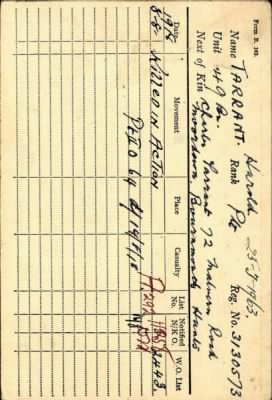 Form B. 143.
25-3-1963.
Name TARRANT. Harold Rank Pte Reg. No. 3130573
Unit 49 Bn.
Next of Kin Charles Tarrant 72 Malvern Road
Moordown Bournemouth Hants
Date Movement Place Casualty List No. Notified N/K O. W.O. List
1918
8-8 KILLED IN ACTION A292 2443.
Pt II O 69 d/ 14/8/18